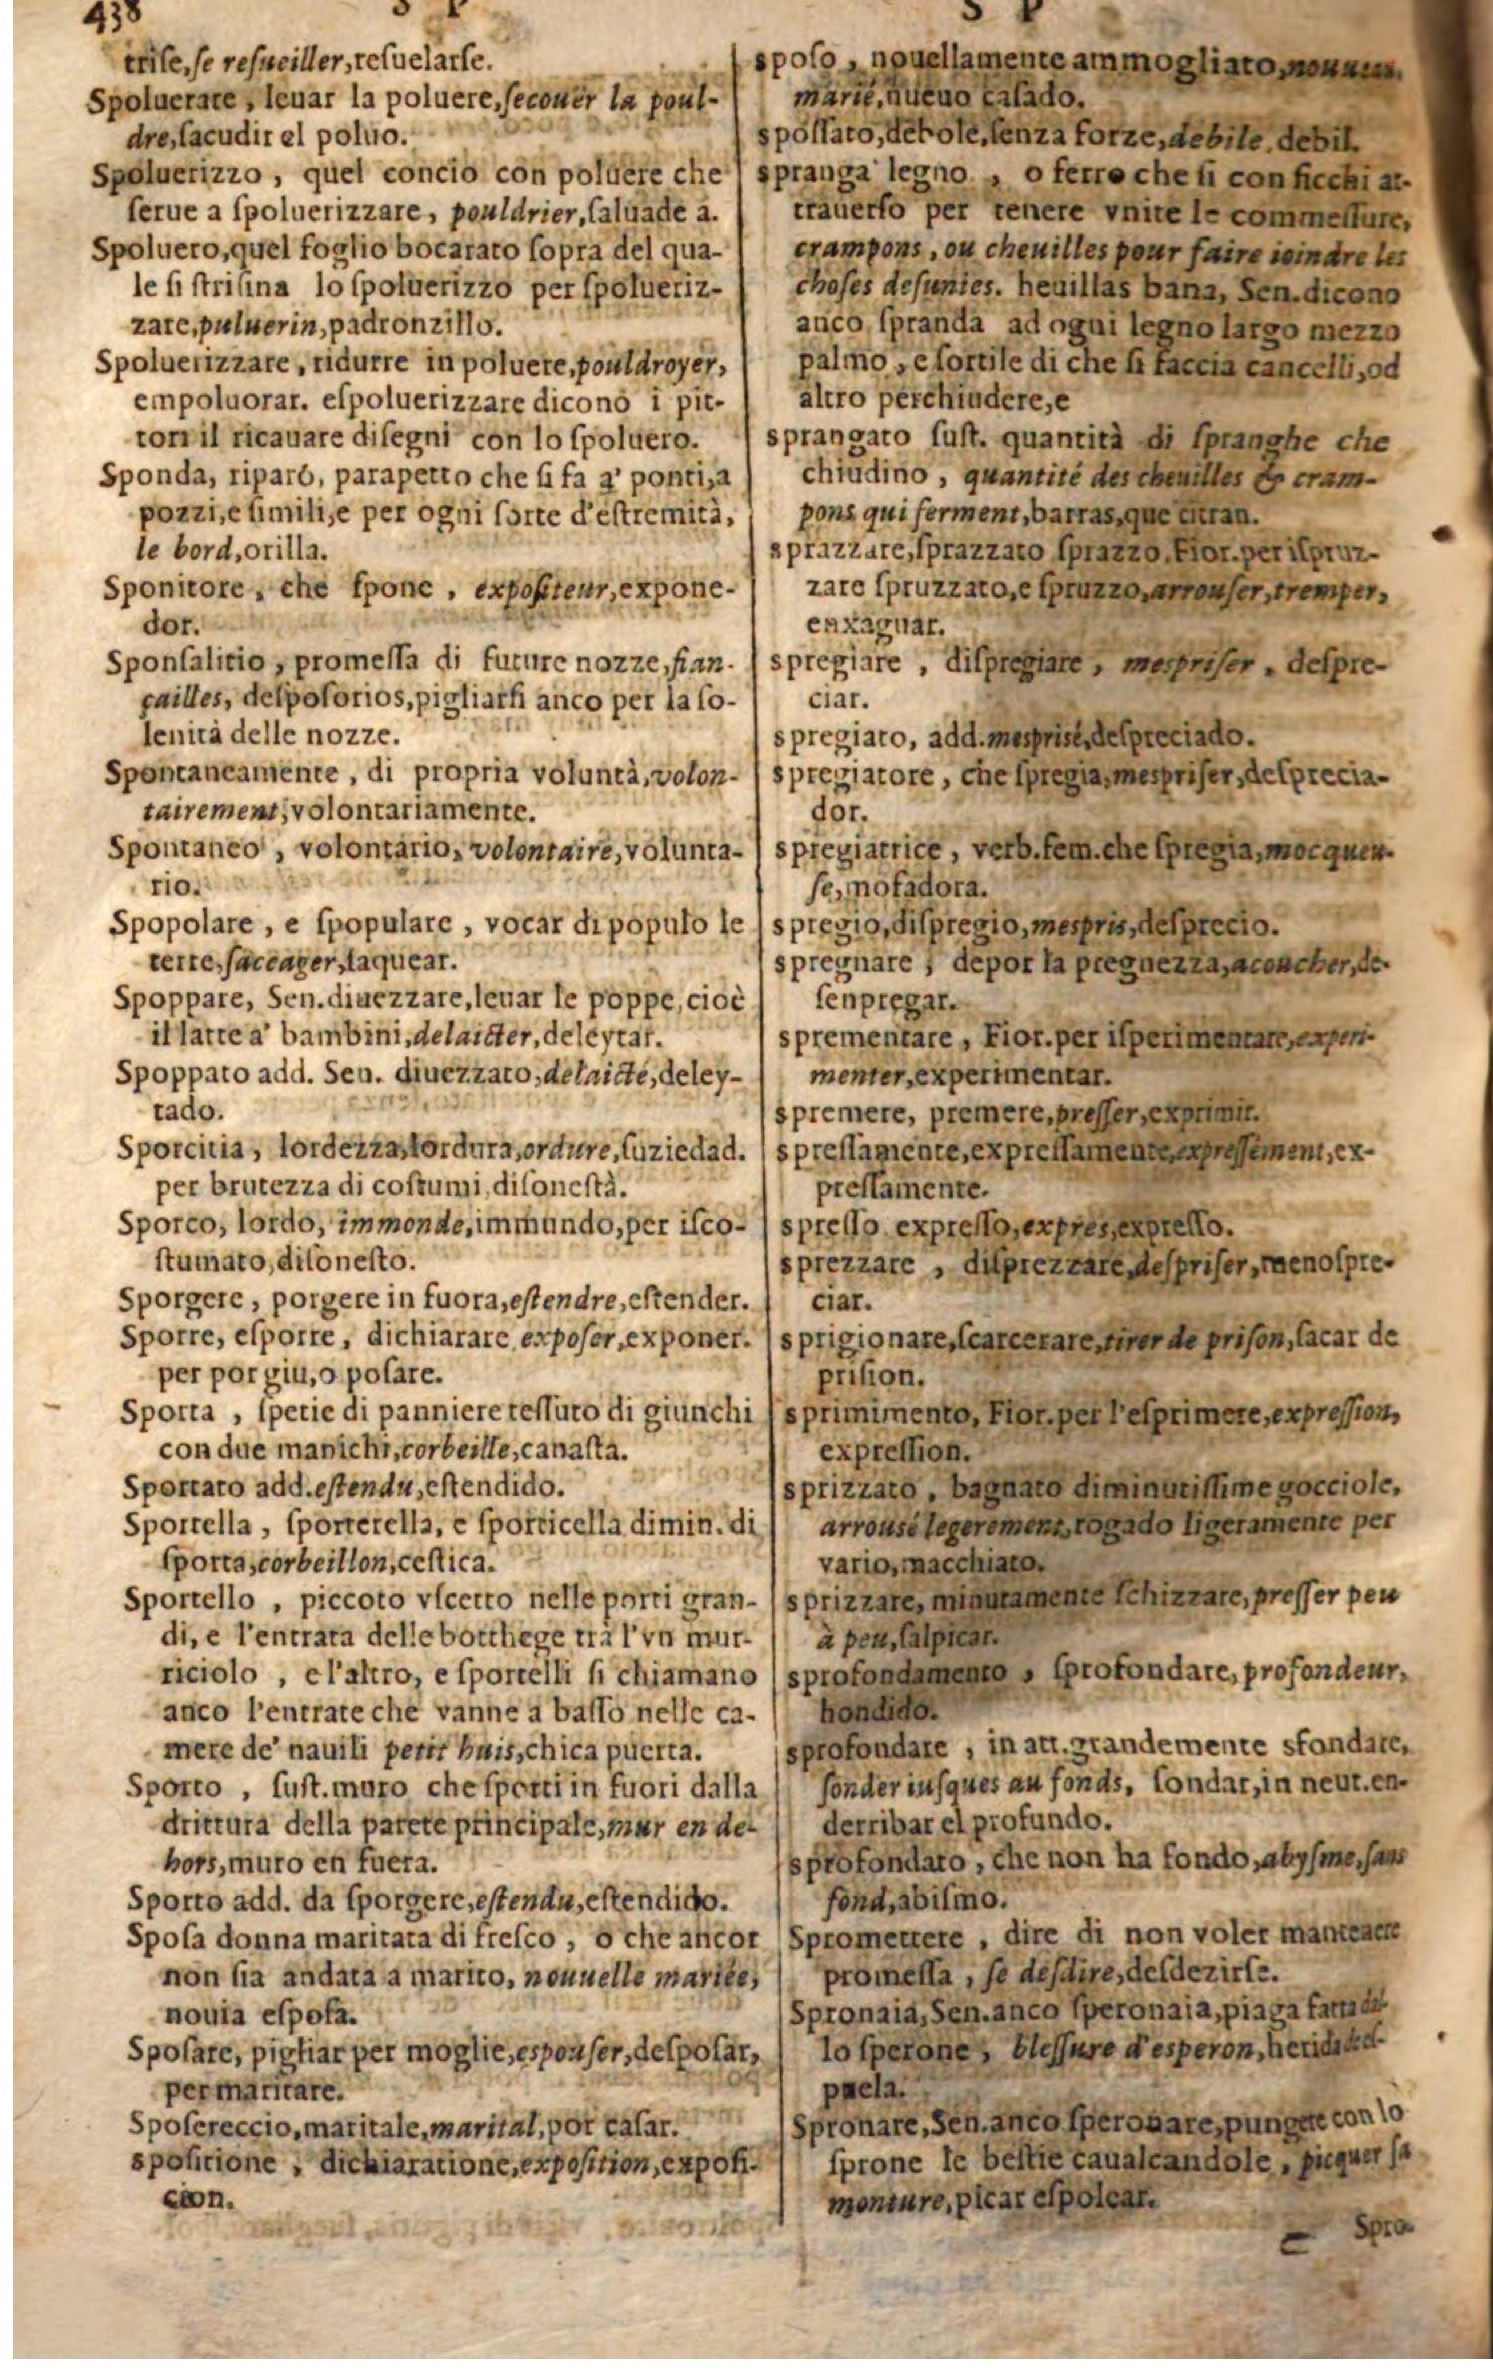 438 S P
trise, se resueiller, resuelarse.
Spoluerare, leuar la poluere, secouër la poul-
dre, sacudir el poluo.
Spoluerizzo, quel concio con poluere che
serue a spoluerizzare, pouldrier, saluade a.
Spoluero, quel foglio bocarato sopra del qua-
le si strisina lo spoluerizzo per spolueriz-
zare, puluerin, padronzillo.
Spoluerizzare, ridurre in poluere, pouldroyer,
empoluorar. espoluerizzare dicono i pit-
tori il ricauare disegni con lo spoluero.
Sponda, riparo, parapetto che si fa a' ponti, a
pozzi, e simili, e per ogni sorte d'estremità,
le bord, orilla.
Sponitore, che spone, expositeur, expone-
dor.
Sponsalitio, promessa di future nozze, fian-
çailles, desposorios, pigliarsi anco per la so-
lenità delle nozze.
Spontaneamente, di propria voluntà, volon-
tairement, volontariamente.
Spontaneo, volontario, volontaire, volunta-
rio.
Spopolare, e spopulare, vocar di populo le
terre, saccager, saquear.
Spoppare, Sen. diuezzare, leuar le poppe, cioè
il latte a' bambini, delaicter, deleytar.
Spoppato add. Sen. diuezzato, delaicté, deley-
tado.
Sporcitia, lordezza, lordura, ordure, suziedad.
per brutezza di costumi, disonestà.
Sporco, lordo, immonde, immundo, per isco-
stumato, disonesto.
Sporgere, porgere in fuora, estendre, estender.
Sporre, esporre, dichiarare, exposer, exponer.
per por giu, o posare.
Sporta, spetie di panniere tessuto di giunchi
con due manichi, corbeille, canasta.
Sportato add. estendu, estendido.
Sportella, sporterella, e sporticella dimin. di
sporta, corbeillon, cestica.
Sportello, piccoto vscetto nelle porti gran-
di, e l'entrata delle botthege trà l'vn mur-
riciolo, e l'altro, e sportelli si chiamano
anco l'entrate che vanne a basso nelle ca-
mere de' nauili petit huis, chica puerta.
Sporto, sust. muro che sporti in fuori dalla
drittura della parete principale, mur en de-
hors, muro en fuera.
Sporto add. da sporgere, estendu, estendido.
Sposa donna maritata di fresco, o che ancor
non sia andata a marito, nouuelle mariée,
nouia esposa.
Sposare, pigliar per moglie, espouser, desposar,
per maritare.
Sposereccio, maritale, marital, por casar.
sposirione, dichiaratione, exposition, exposi-
cion.
S P
sposo, nouellamente ammogliato,
marié, nueuo casado.
spossato, debole, senza forze, debile, debil.
spranga legno, o ferro che si conficchi at-
trauerso per tenere vnite le commessure,
crampons, ou cheuilles pour faire ioindre les
choses desunies. heuillas bana, Sen. dicono
anco spranda ad ogni legno largo mezzo
palmo, e sortile di che si faccia cancelli, od
altro perchiudere, e
sprangato sust. quantità di spranghe che
chiudino, quantité des cheuilles & cram-
pons qui ferment, barras, que citran.
sprazzare, sprazzato sprazzo. Fior. per ispruz-
zare spruzzato, e spruzzo, arrouser, tremper,
enxaguar.
spregiare, dispregiare, mespriser, despre-
ciar.
spregiato, add. mesprisé, despreciado.
spregiatore, che spregia, mespriser, desprecia-
dor.
spregiatrice, verb. fem. che spregia, mocqueu-
se, mofadora.
spregio, dispregio, mespris, desprecio.
spregnare, depor la pregnezza, acoucher, de-
senpregar.
sprementare, Fior. per isperimentare, experi-
menter, experimentar.
spremere, premere, presser, exprimir.
spressamente, expressamente, expressément, ex-
pressamente.
spresso expresso, expres, expresso.
sprezzare, disprezzare, despriser, menospre-
ciar.
sprigionare, scarcerare, tirer de prison, sacar de
prision.
sprimimento, Fior. per l'esprimere, expression,
expression.
sprizzato, bagnato diminutissime gocciole,
arrousé legerement, rogado ligeramente per
vario, macchiato.
sprizzare, minutamente schizzare, presser peu
à peu, salpicar.
sprofondamento, sprofondare, profondeur,
hondido.
sprofondare, in att. grandemente sfondare,
sonder iusques au fonds, sondar, in neut. en-
derribar el profundo.
sprofondato, che non ha fondo, abysme, sans
fond, abismo.
Spromettere, dire di non voler mantenere
promessa, se desdire, desdezirse.
Spronaia, Sen. anco speronaia, piaga fatta dal-
lo sperone, blessure d'esperon, herida
puela.
Spronare, Sen. anco speronare, pungere con lo
sprone le bestie caualcandole, picquer sa
monture, picar espolear.
Spro-